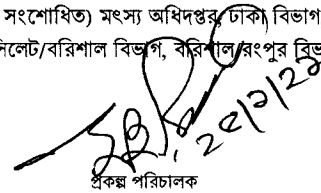 সংশোধিত) মৎস্য অধিদপ্তর, ঢাকা বিভাগ
সিলেট/বরিশাল বিভাগ, বরিশাল/রংপুর বিভ
প্রকল্প পরিচালক